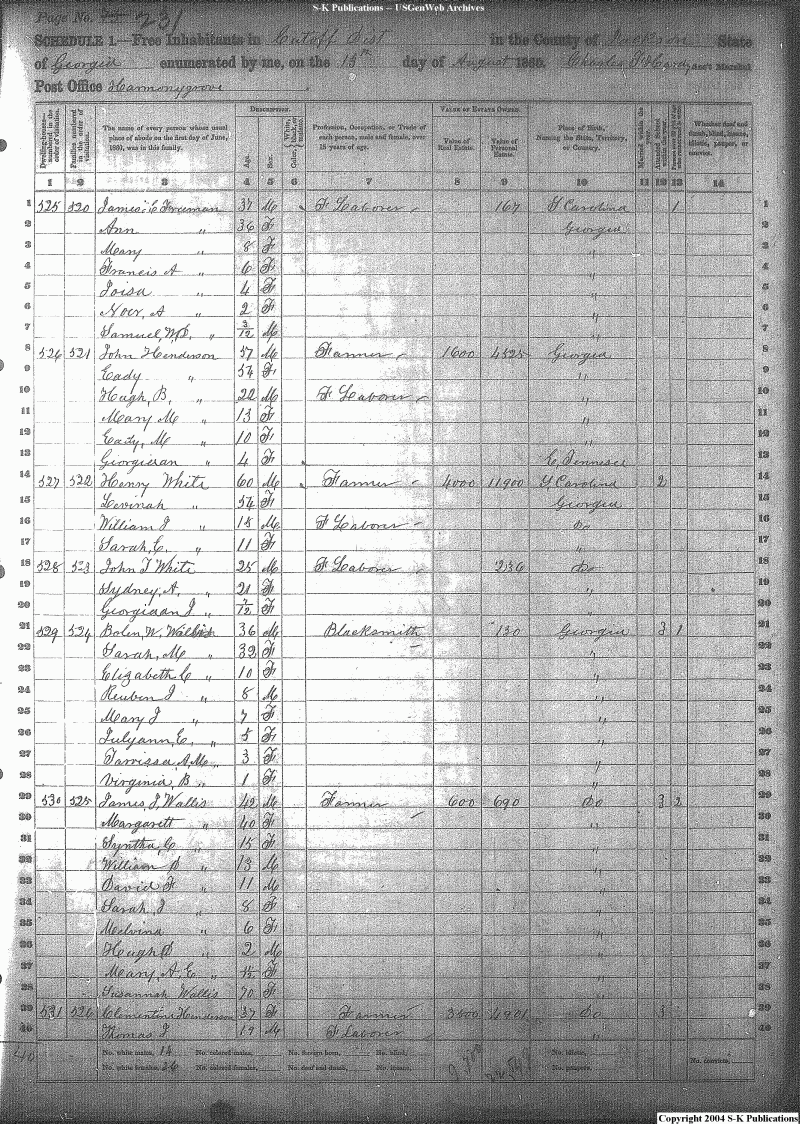 S-K Publications – USGenWeb Archives
Page No. 231
SCHEDULE 1.—Free Inhabitants in Cutoff Dist in the County of Jackson State
of Georgia enumerated by me, on the 15th day of August 1860. Charles T Hardy Ass't Marshal
Post Office Harmonygrove
DESCRIPTION. VALUE OF ESTATE OWNED.
Dwelling-houses—numbered in the order of visitation.
Families numbered in the order of visitation.
The name of every person whose usual place of abode on the first day of June, 1860, was in this family.
Age.
Sex.
Color, White, black, or mulatto.
Profession, Occupation, or Trade of each person, male and female, over 15 years of age.
Value of Real Estate.
Value of Personal Estate.
Place of Birth, Naming the State, Territory, or Country.
Married within the year.
Attended School within the year.
Whether deaf and dumb, blind, insane, idiotic, pauper, or convict.
1 2 3 4 5 6 7 8 9 10 11 12 13 14
1 525 520 James C Freeman 37 M F Laborer 167 S Carolina 1 1
2 Ann " 36 F Georgia 2
3 Mary " 8 F " 3
4 Francis A " 6 F " 4
5 Loisa " 4 F " 5
6 A " 2 F " 6
7 Samuel " 3/12 M " 7
8 526 521 John Henderson 57 M Farmer 1600 4525 Georgia 8
9 Eady " 54 F " 9
10 Hugh, B, " 22 M F Laborer " 10
11 Mary M " 13 F " 11
12 Eady, M " 10 F " 12
13 Georgiean " 4 F E, Tennesee 13
14 527 522 Henry White 60 M Farmer 4000 11900 S Carolina 2 14
15 Levinah " 54 F Georgia 15
16 William J " 18 M F Laborer Do 16
17 Sarah, C, " 11 F " 17
18 528 523 John T White 25 M F Laborer 236 Do 18
19 Sydney, A, " 21 F " 19
20 Georgiaan J " /12 F " 20
21 529 524 Bolen, W, Wallis 36 M Blacksmith 130 Georgia 3 1 21
22 Sarah, M " 32 F " 22
23 Elizabeth C " 10 F " 23
24 Reuben J " 8 M " 24
25 Mary J " 7 F " 25
26 Julyann, E, " 5 F " 26
27 A, M, " 3 F " 27
28 Virginia, B " 1 F " 28
29 530 525 James, J, Wallis 42 M Farmer 600 690 Do 3 2 29
30 Margarett " 40 F " 30
31 Syntha, C " 15 F " 31
32 William D " 13 M " 32
33 David F " 11 M " 33
34 Sarah J " 8 F " 34
35 Melvina " 6 F " 35
36 Hugh D " 2 M " 36
37 Mary, A, E " F " 37
38 Susannah Wallis 70 F " 38
39 531 526 Clementine Henderson 37 F Farmer 3500 4901 Do 3 39
40 Thomas J 19 M F Laborer " 40
No. white males, 14 No. colored males, No. foreign born, No. blind, No. idiotic,
No. white females, 26 No. colored females, No. deaf and dumb, No. insane, No. paupers, No. convicts,
Copyright 2004 S-K Publications